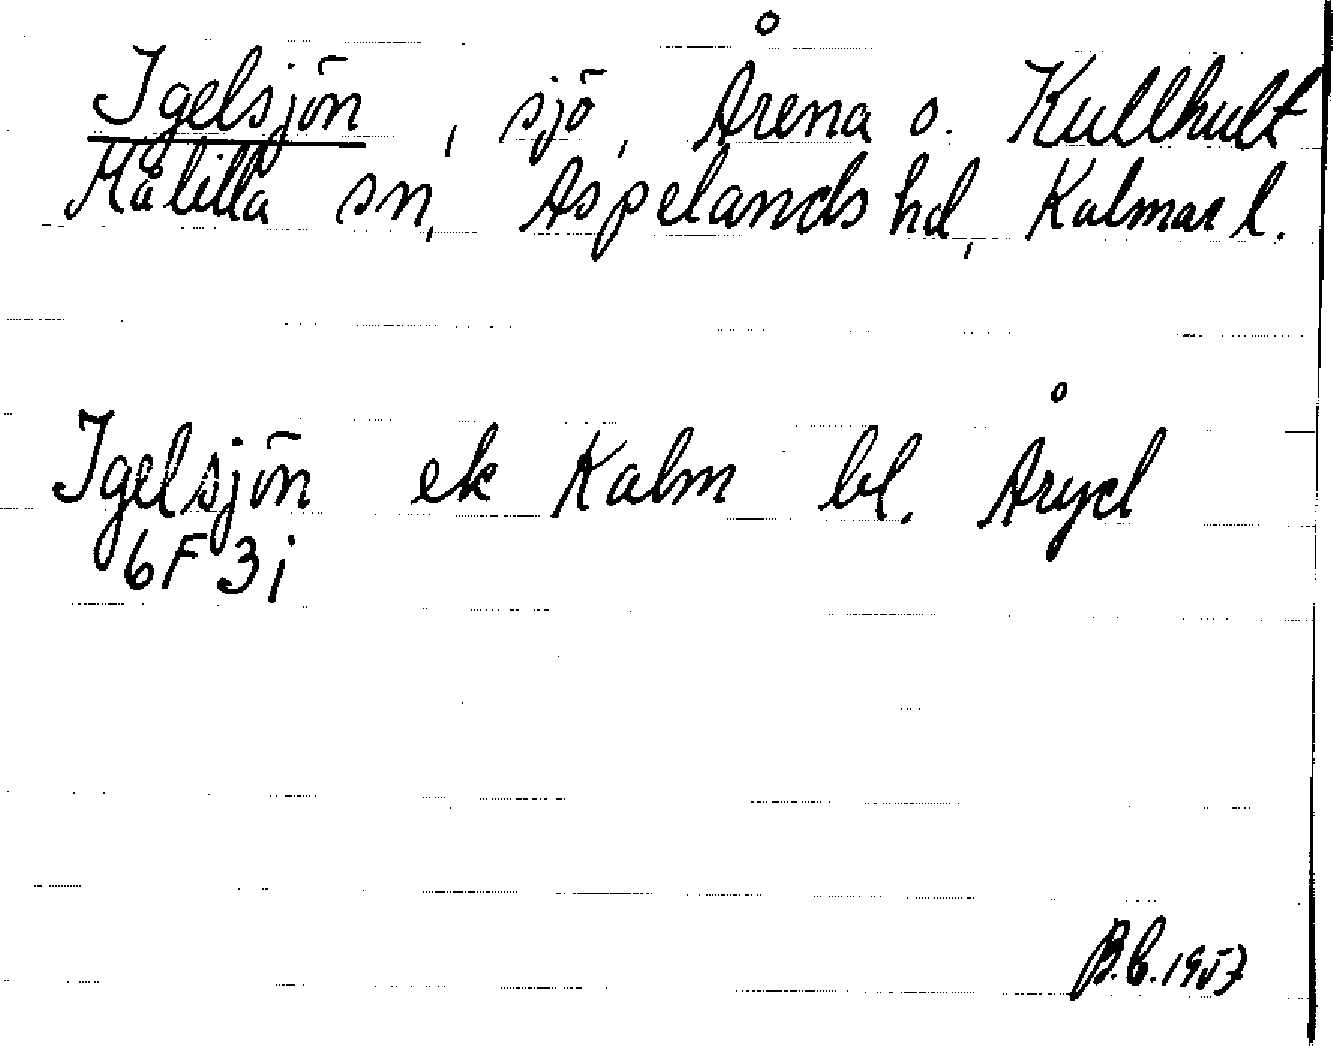 Igelsjön, sjö, Årena o. Kullhult
Målilla sn, Aspelands hd, Kalmar l.
Igelsjön ek Kalm bl. Åryd
6F3i
B.E. 1957